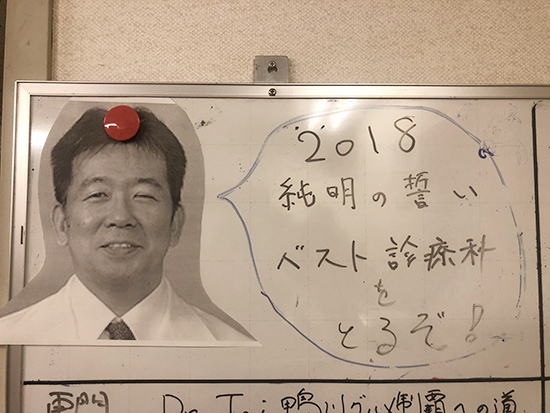 2018
純明の誓い
ベスト診療科
を
とるぞ!
Dr. Joi 鴨川グルメ制覇への道